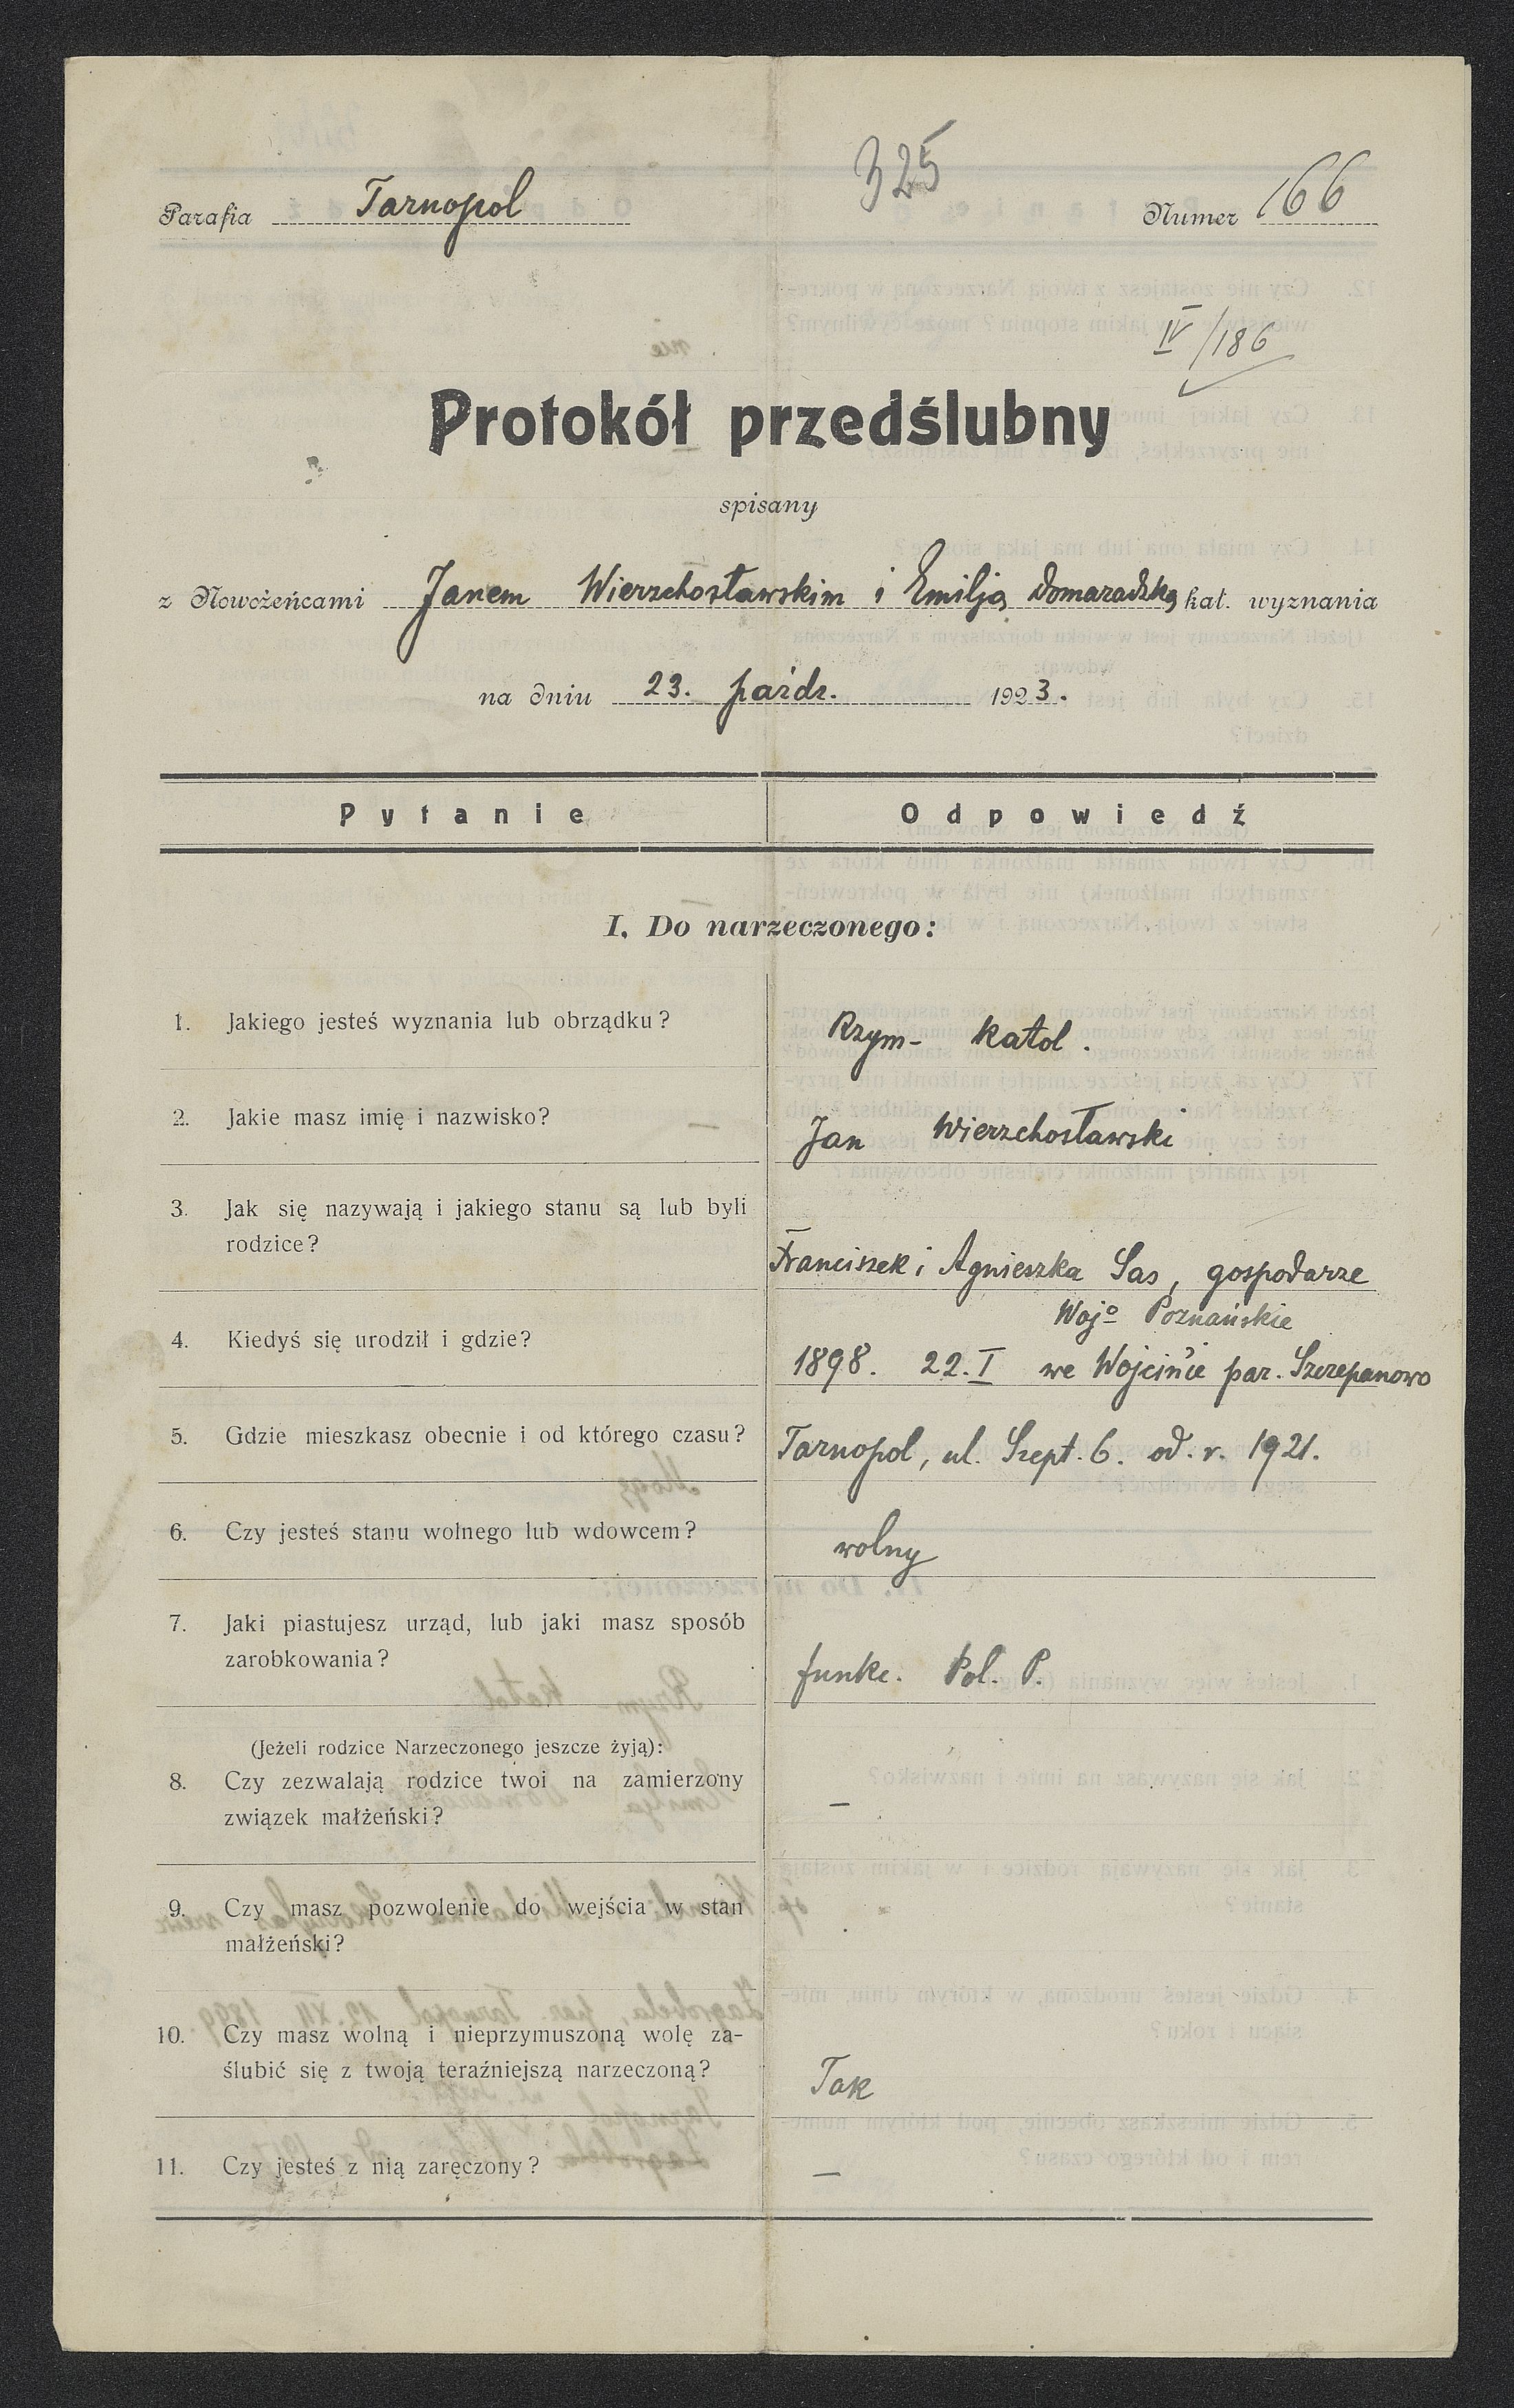 325
Parafia Tarnopol Numer 166
IV/186
Protokół przedślubny
spisany
z Nowożeńcami Janem Wierzchosławskim i Emilją Domaradzką kat. wyznania
na dniu 23. paźdz. 1923.
Pytanie Odpowiedź
I. Do narzeczonego:
1. Jakiego jesteś wyznania lub obrządku? Rzym- katol.
2. Jakie masz imię i nazwisko? Jan Wierzchosławski
3. Jak się nazywają i jakiego stanu są lub byli
rodzice? Franciszek i Agnieszka Sas, gospodarze
Wojo Poznańskie
4. Kiedyś się urodził i gdzie? 1898. 22.I we Wójcinie par. Szczepanowo
5. Gdzie mieszkasz obecnie i od którego czasu? Tarnopol, ul. Szept. 6. od. r. 1921.
6. Czy jesteś stanu wolnego lub wdowcem? wolny
7. Jaki piastujesz urząd, lub jaki masz sposób
zarobkowania? funkc. Pol. P.
(Jeżeli rodzice Narzeczonego jeszcze żyją):
8. Czy zezwalają rodzice twoi na zamierzony
związek małżeński? —
9. Czy masz pozwolenie do wejścia w stan
małżeński?
10. Czy masz wolną i nieprzymuszoną wolę za-
ślubić się z twoją teraźniejszą narzeczoną? Tak
11. Czy jesteś z nią zaręczony? —